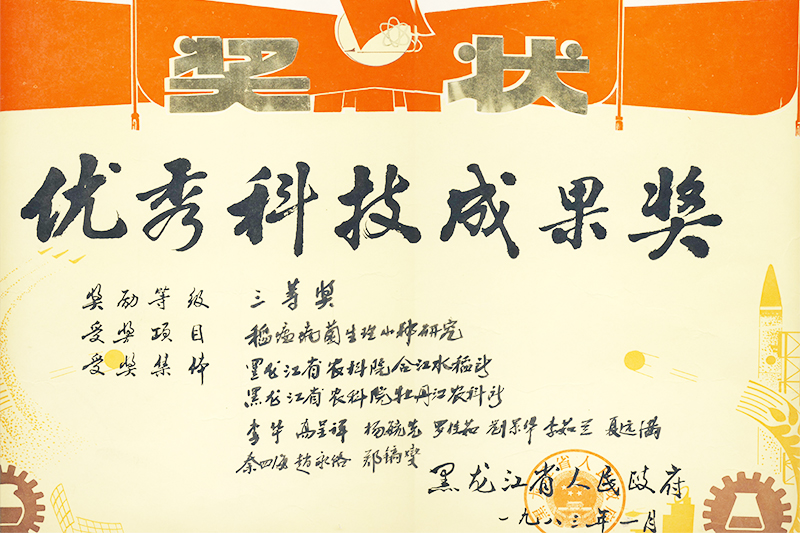 奖状
优秀科技成果奖
奖励等级 三等奖
受奖项目 稻瘟病菌生理小种研究
受奖集体 黑龙江省农科院合江水稻所
黑龙江省农科院牡丹江农科所
李华 高呈祥 杨毓光 罗 刘景华 李茹兰 夏远满
秦四海 赵永洛 郑镐燮
黑龙江省人民政府
一九八三年一月